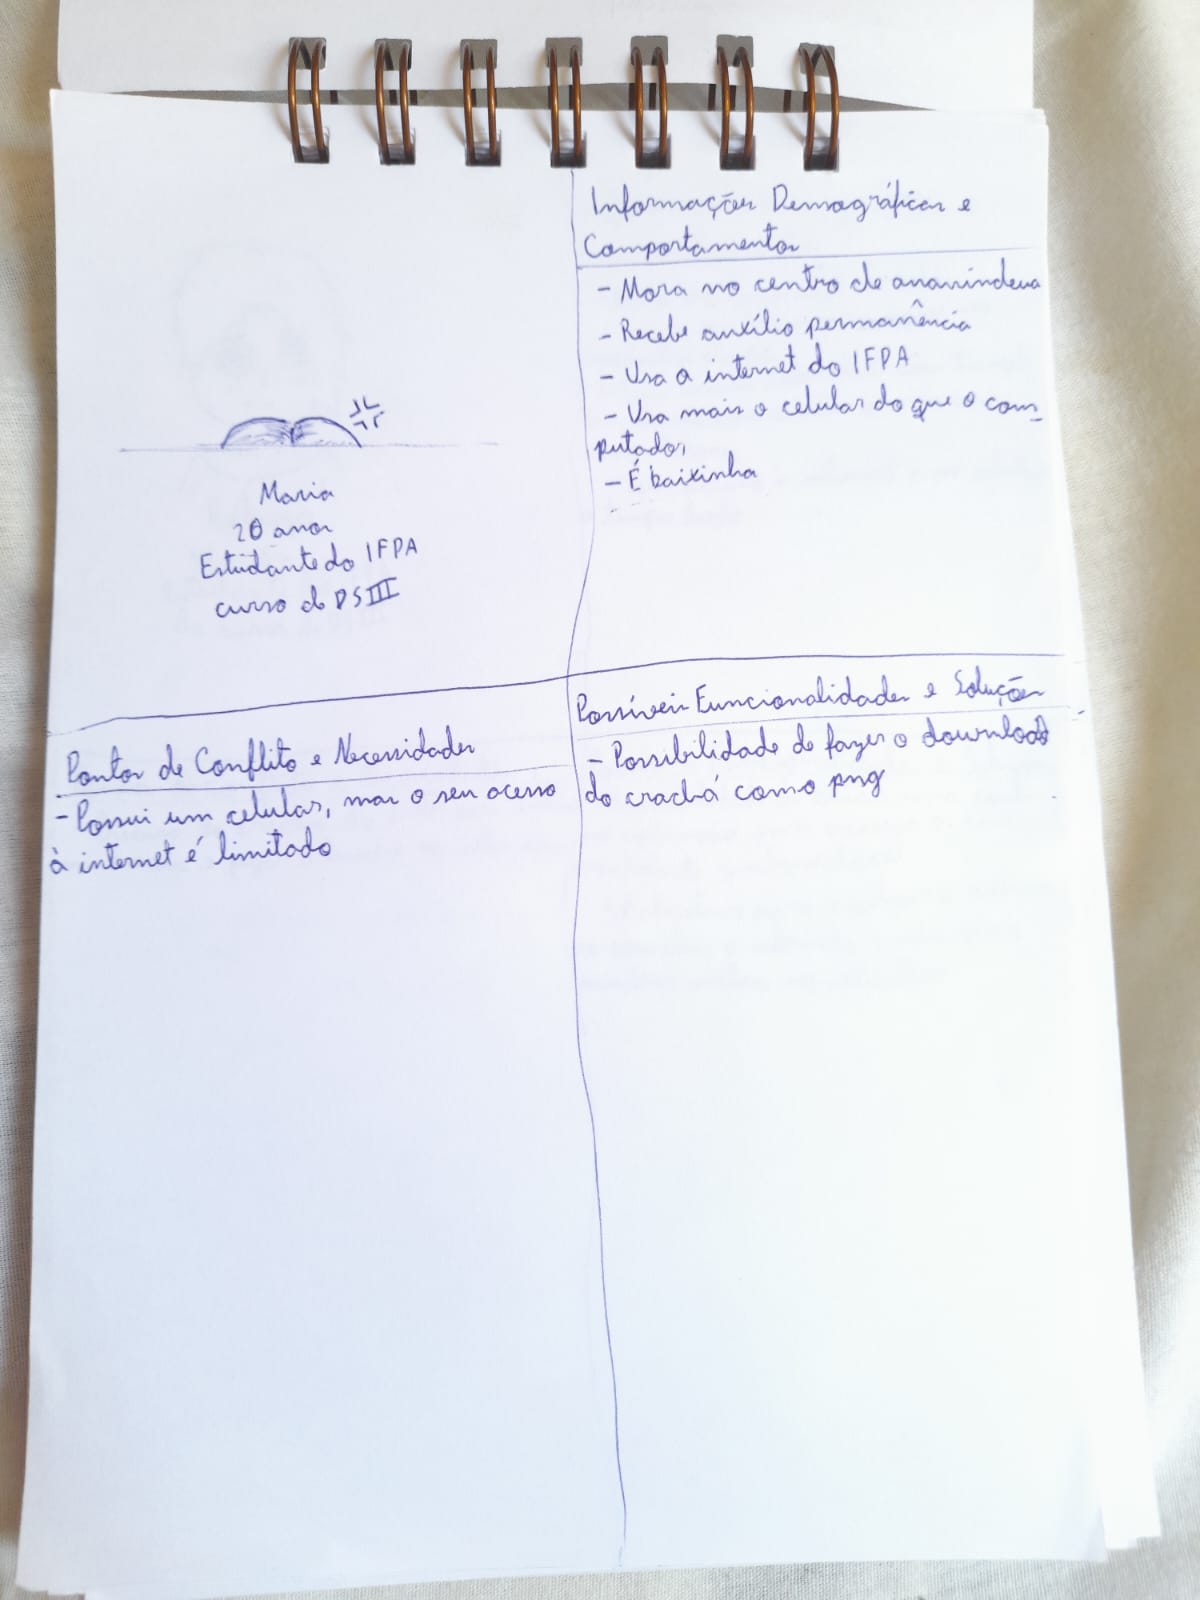 Maria
20 anos
Estudante do IFPA
curso de DS III
Informações Demográficas e
Comportamentos
- Mora no centro de ananindeua
- Recebe auxílio permanência
- Usa a internet do IFPA
- Usa mais o celular do que o com-
putador
- É baixinha
Pontos de Conflito e Necessidades
- Possui um celular, mas o seu acesso
à internet é limitado
Possíveis Funcionalidades e Soluções
- Possibilidade de fazer o download
do crachá como png